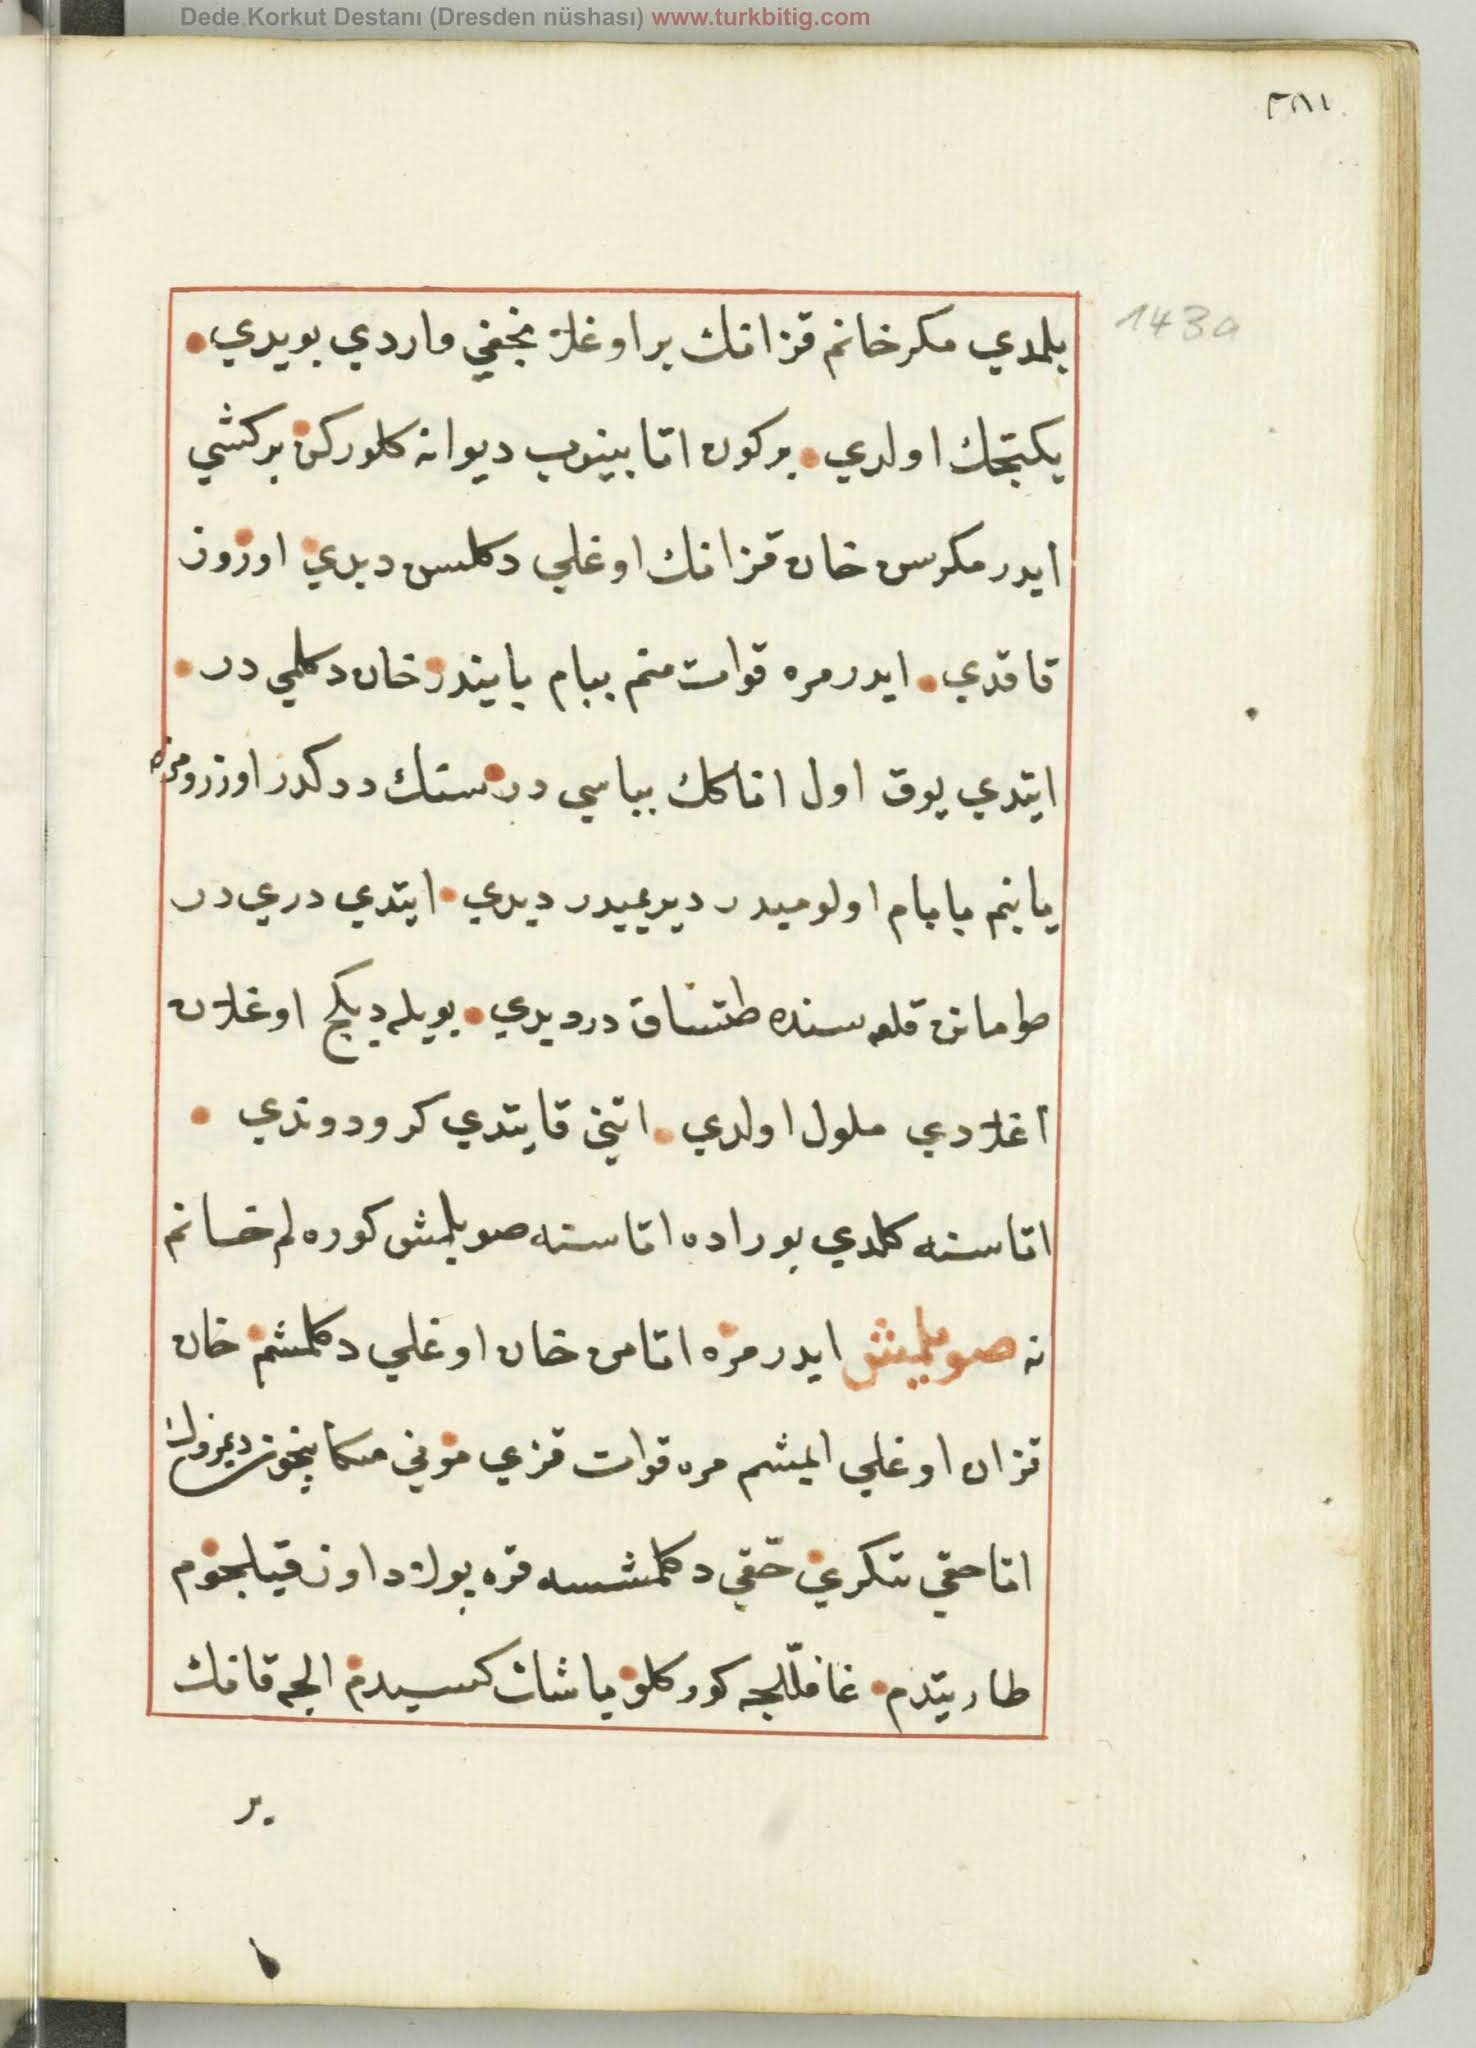 Dede Korkut Destanı (Dresden nüshası) www.turkbitig.com
٢٨١
143a
بلمدي مكر خانم قزانك بر اوغلانجغي واردي بويدي
يكتجك اولدي بر كون اتا بينوب ديوانه كلوركن بر كشي
ايدر مكر سن خان قزانك اوغلي دكلسن ديدي اوروز
قاقدي ايدر مره قوات منم ببام بايندر خان دكلمي در
ايتدي يوق اول اناكك بباسي در سنك ددكدر اوزرو مره
يا بنم بابام اولوميدر ديريميدر ديدي ايتدي دري در
طومانن قلعه سنده طتساق در ديدي بويله ديكج اوغلان
اغلادي ملول اولدي اتني قايتدي كرو دوندي
اتاسنه كلدي بوراده اناسنه صويلمش كوره لم خانم
نه صويلميش ايدر مره انا من خان اوغلي دكلمشم خان
قزان اوغلي ايمشم مره قوات قزي موني منكا نيچون ديمزدك
انا حقي تنكري حقي دكلمشسه قره پولاد اوز قيلجوم
طارتيدم غافللجه كوركلو باشك كسيدم الجه قانك
ير